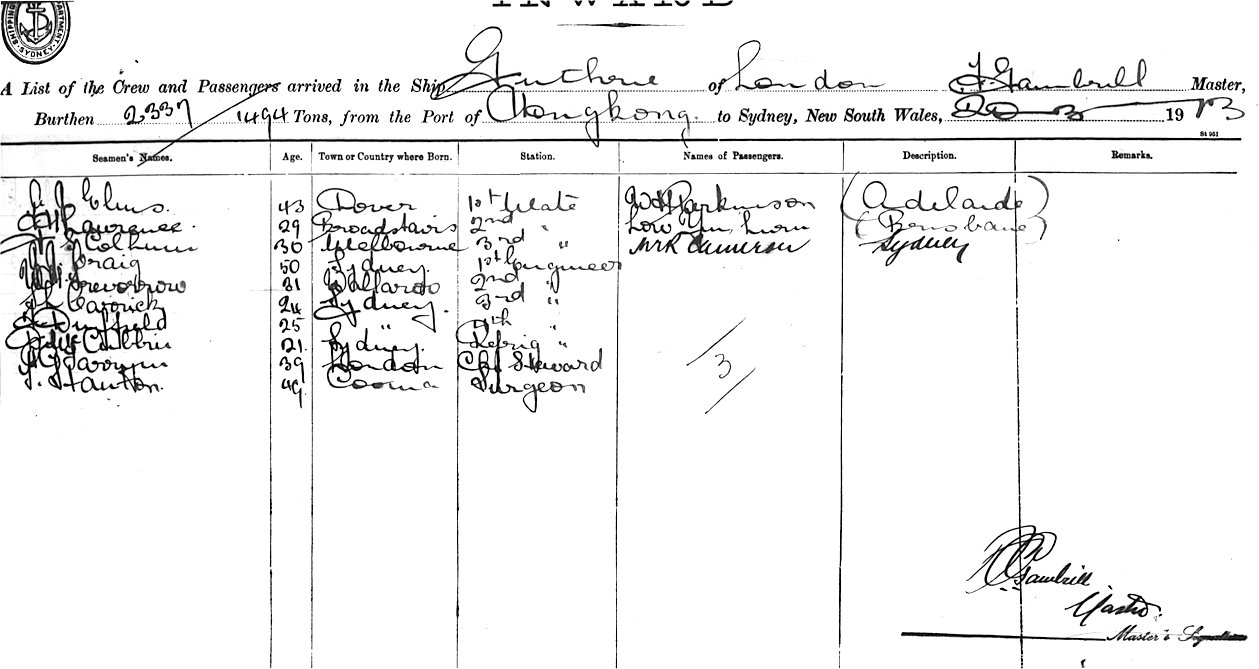 INWARD
SHIPPING DEPARTMENT, SYDNEY
A List of the Crew and Passengers arrived in the Ship Guthrie of London F. Gambrill Master,
Burthen 2337 1494 Tons, from the Port of Hongkong. to Sydney, New South Wales, 20 3 1913
St 951
Seamen's Names. Age. Town or Country where Born. Station. Names of Passengers. Description. Remarks.
Elms. 43 Dover 1st Mate W H Parkinson (Adelaide)
Lawrence. 29 Broadstairs 2nd " Low Yun (Brisbane)
30 Melbourne 3rd " Mr R Cameron Sydney
Craig 50 Sydney. 1st Engineer
Trevorrow 31 Ballarat 2nd "
Carrick 24 Sydney. 3rd "
Duffield 25 " 4th "
21. Sydney. Refrig "
39 London Ch. Steward
49 Cooma Surgeon
3
Gambrill
Master.
Master's Signature